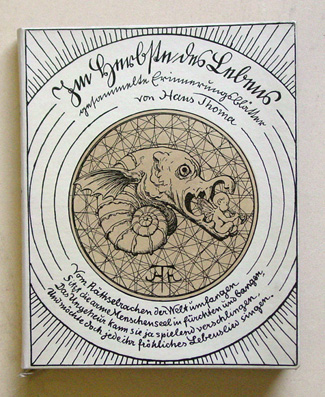 Im Herbste des Lebens
gesammelte Erinnerungsblätter
von Hans Thoma
HTh
Vom Räthselrachen der Welt umfangen
Sitzt die arme Menschenseel in fürchten und bangen.
Das Ungeheür kann sie ja spielend verschlingen
Und möchte doch jede ihr fröhliches Lebenslied singen.